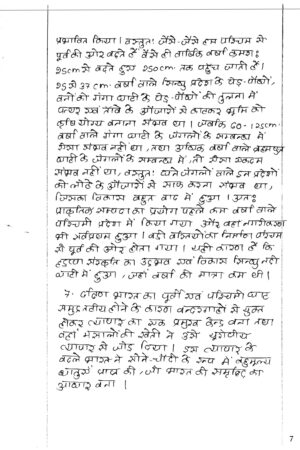 प्रभावित किया। वस्तुतः जैसे-जैसे हम पश्चिम से
पूर्व की ओर बढ़ते हैं वैसे ही वार्षिक वर्षा क्रमशः
25cm से बढ़ते हुए 250cm तक पहुंच जाती है।
25 से 37 cm वर्षा वाले सिन्धु प्रदेश के पेड़-पौधों,
वनों को गंगा घाटी के पेड़-पौधों की तुलना में
पत्थर एवं तांबे के औजारों से काटकर भूमि को
कृषि योग्य बनाना संभव था। जबकि 60-125cm
वर्षा वाले गंगा घाटी के जंगलों के सम्बन्ध में
ऐसा संभव नहीं था, तथा अधिक वर्षा वाले ब्रह्मपुत्र
घाटी के जंगलों के सम्बन्ध में, तो ऐसा एकदम
संभव नहीं था, वस्तुतः घने जंगलों वाले इन प्रदेशों
को लोहे के औजारों से साफ करना संभव था,
जिसका विकास बहुत बाद में हुआ। अतः
प्राकृतिक सम्पदा का प्रयोग पहले कम वर्षा वाले
पश्चिमी प्रदेश में किया गया और वहां नागरीकरण
भी सर्वप्रथम हुआ। बड़ी बस्तियों का निर्माण पश्चिम
से पूर्व की ओर होता गया। यही कारण है कि
हड़प्पा संस्कृति का उद्भव एवं विकास सिन्धु नदी
घाटी में हुआ, जहां वर्षा की मात्रा कम थी।
7. दक्षिण भारत का पूर्वी एवं पश्चिमी घाट
समुद्र तटीय होने के कारण बन्दरगाहों से युक्त
होकर व्यापार का एक प्रमुख केन्द्र बना तथा
वहां मसालों की खेती ने उसे यूरोपीय
व्यापार से जोड़ दिया। इस व्यापार के
बदले भारत ने सोने-चाँदी के रूप में बहुमूल्य
धातुएं प्राप्त की, जो भारत की समृद्धि का
आधार बना।
7